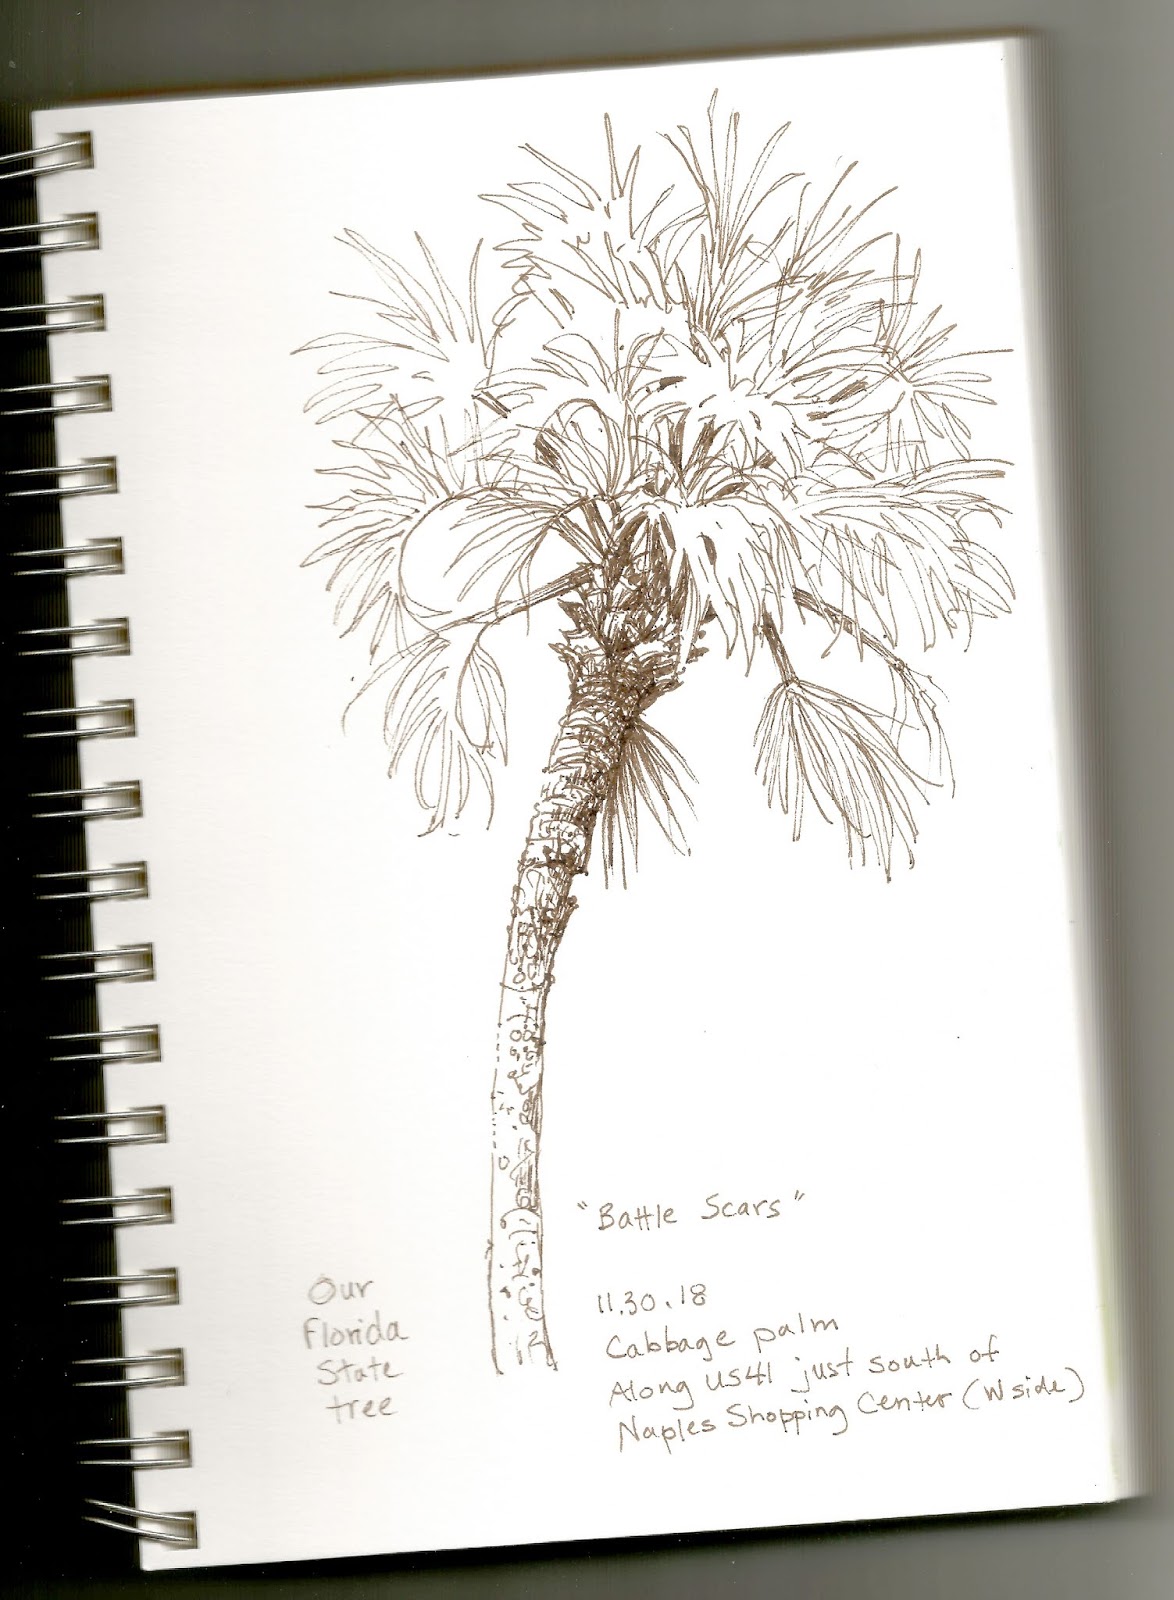 "Battle Scars"
Our
Florida
State
tree
11.30.18
Cabbage palm
Along US41 just south of
Naples Shopping Center (W side)